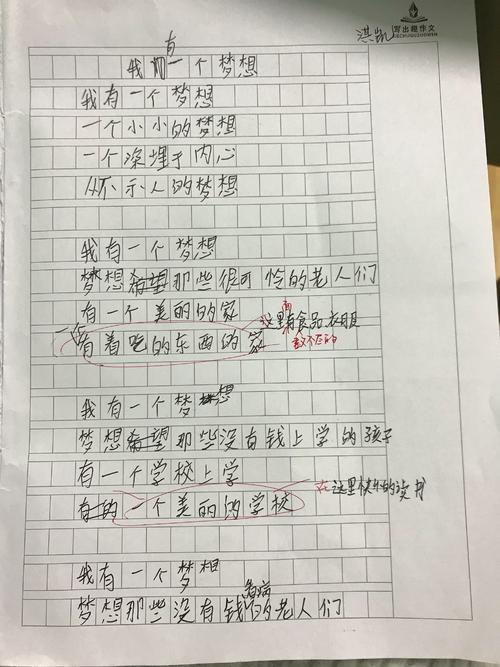 写出趣作文
洪凯
我有一个梦想
我有一个梦想
一个小小的梦想
一个深埋于内心
从不示人的梦想
我有一个梦想
梦想希望那些很可怜的老人们
有一个美丽的的家
一个有着吃的东西的家 这里面有食品、衣服
数不尽的
我有一个梦想
梦想希望那些没有钱上学的孩子
有一个学校上学
有的一个美丽的学校 在这里快乐的读书
我有一个梦想
梦想那些没有钱看病的老人们